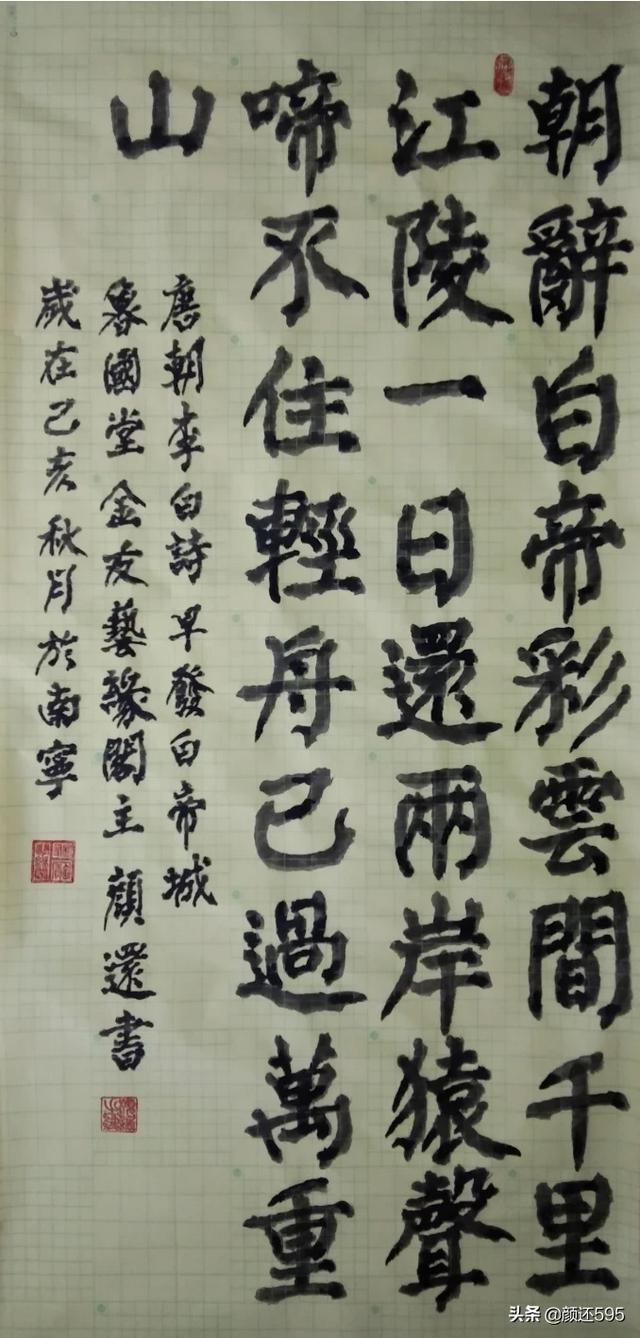 朝辭白帝彩雲間千里
江陵一日還兩岸猿聲
啼不住輕舟已過萬重
山
唐朝李白詩早發白帝城
魯國堂金友藝緣閣主顏還書
歲在己亥秋月於南寧
头条 @颜还595